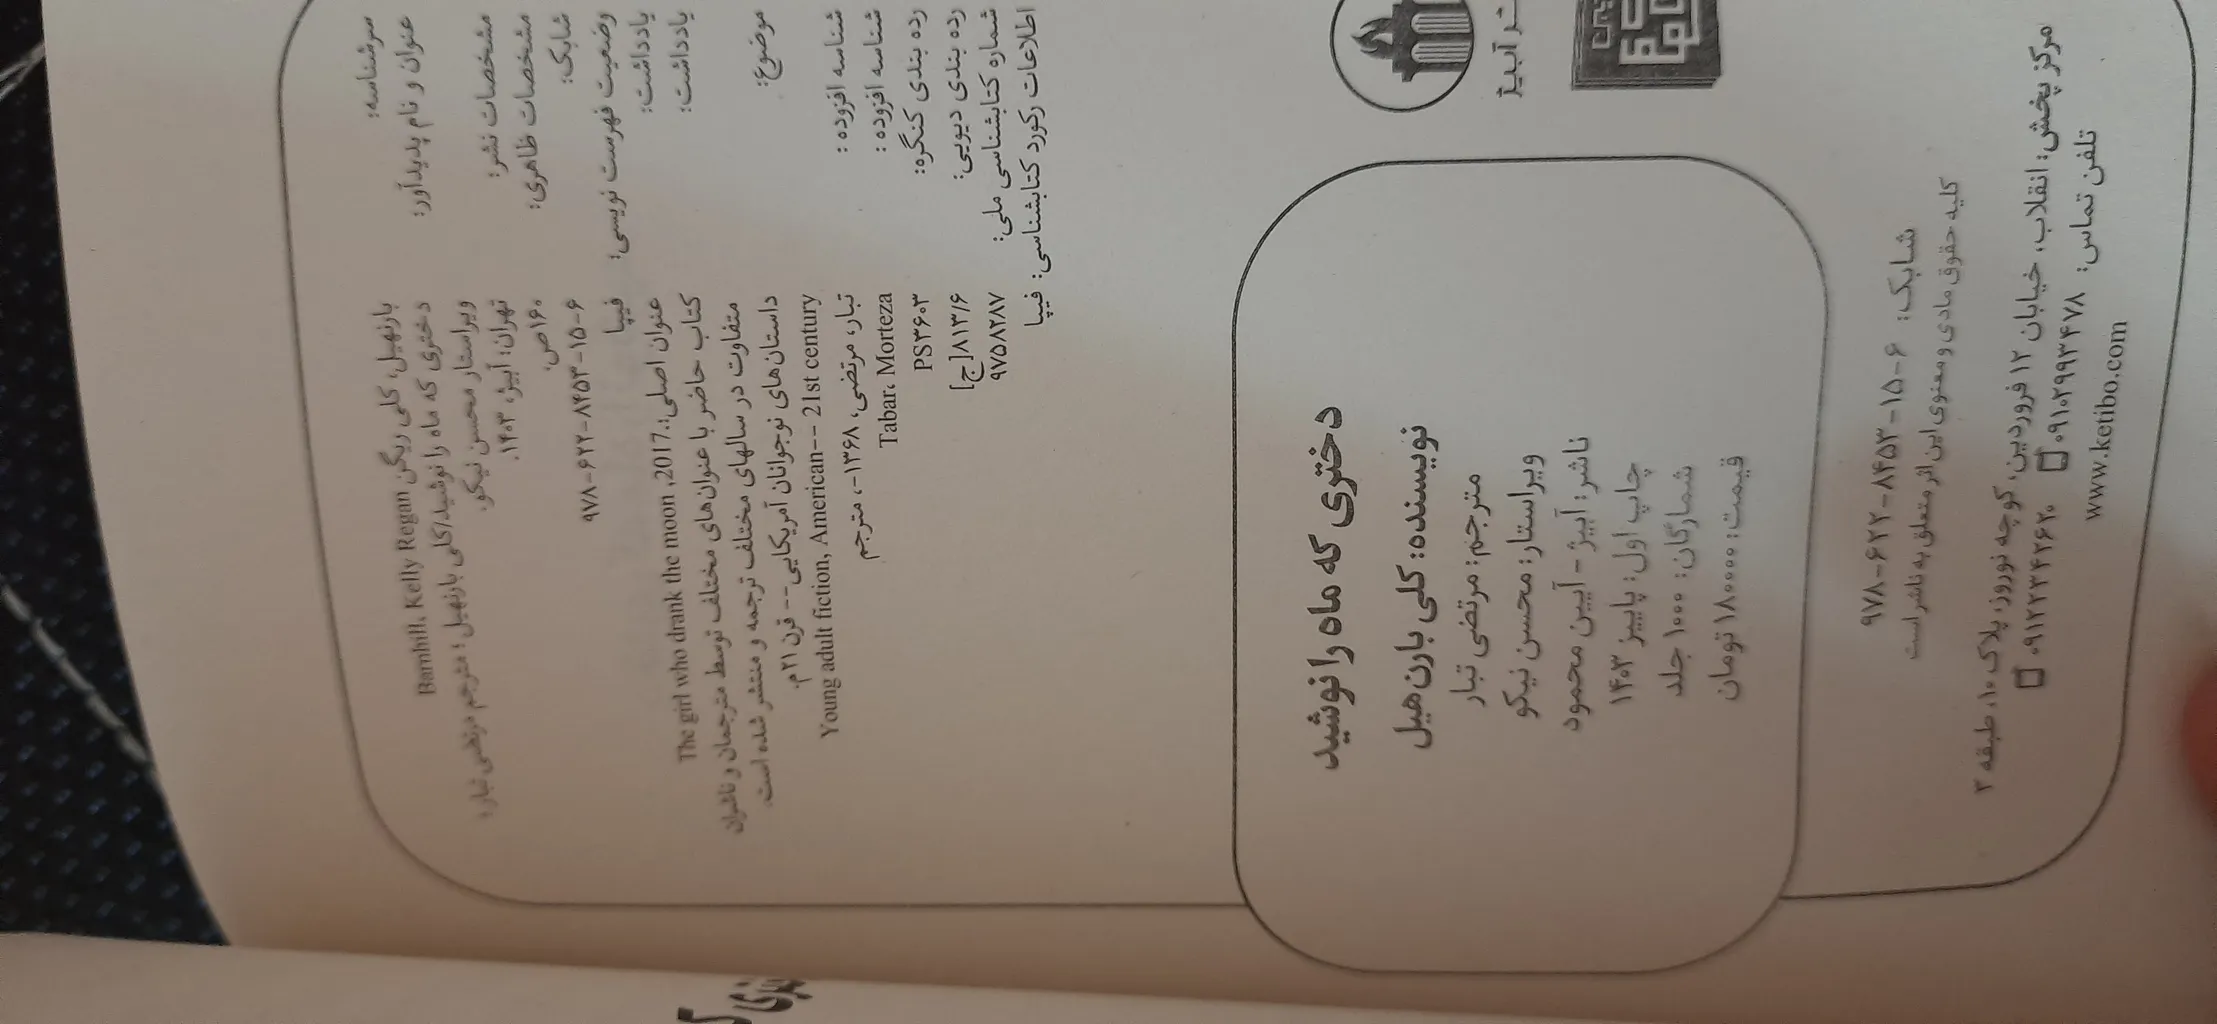 سرشناسه: بارنهیل، کلی ریگن Barnhill, Kelly Regan
عنوان و نام پدیدآور: دختری که ماه را نوشید/کلی بارنهیل ؛ مترجم مرتضی تبار؛
ویراستار محسن نیکو.
مشخصات نشر: تهران: آبیژ، ۱۴۰۳.
مشخصات ظاهری: ۱۶۰ص.
شابک: ۹۷۸-۶۲۲-۸۴۵۳-۱۵-۶
وضعیت فهرست نویسی: فیپا
یادداشت: عنوان اصلی: The girl who drank the moon ,2017.
یادداشت: کتاب حاضر با عنوان‌های مختلف توسط مترجمان و ناشران
متفاوت در سالهای مختلف ترجمه و منتشر شده است.
موضوع: داستان‌های نوجوانان آمریکایی -- قرن ۲۱م.
Young adult fiction, American -- 21st century
شناسه افزوده : تبار، مرتضی، ۱۳۶۸-، مترجم
شناسه افزوده : Tabar، Morteza
رده بندی کنگره: PS۳۶۰۳
رده بندی دیویی: ۸۱۳/۶[ج]
شماره کتابشناسی ملی: ۹۷۵۸۲۸۷
اطلاعات رکورد کتابشناسی: فیپا
نشر آبیژ
دختری که ماه را نوشید
نویسنده: کلی بارن هیل
مترجم: مرتضی تبار
ویراستار: محسن نیکو
ناشر: آبیژ - آیین محمود
چاپ اول: پاییز ۱۴۰۳
شمارگان: ۱۰۰۰ جلد
قیمت: ۱۸۰۰۰۰ تومان
شابک: ۹۷۸-۶۲۲-۸۴۵۳-۱۵-۶
کلیه حقوق مادی و معنوی این اثر متعلق به ناشر است
مرکز پخش: انقلاب، خیابان ۱۲ فروردین، کوچه نوروز، پلاک ۱۰، طبقه ۲
تلفن تماس: ۰۹۱۰۲۹۹۳۴۷۸
www.ketibo.com